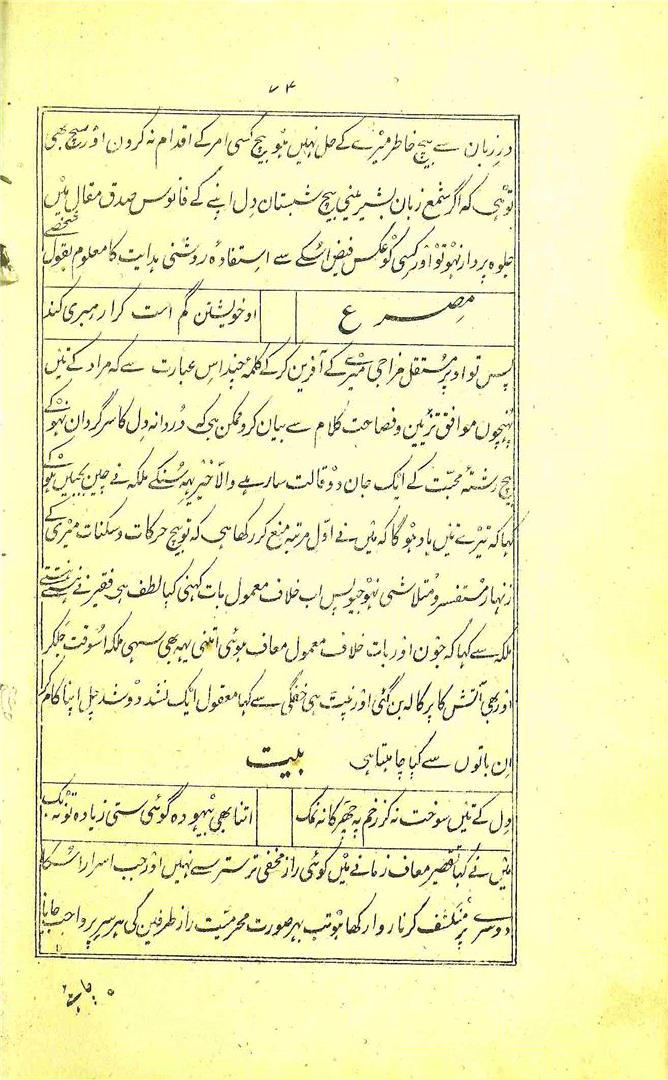 ۷۴
در زبان سے بیچ خاطر میرے کے حل نہیں ہو بیچ کسی امر کے اقدام نہ کرون اور سچ بھی
تو ہی کہ اگر شمع زبان بشیرینی بیچ شبستان دل اپنے کے فانوس صدق مقال میں
جلوہ پرداز نہو تو اور کسی کو عکس فیض اسکے سے استفادہ روشنی ہدایت کا معلوم بقول شخصے
مصرع او خویشتن گم است کرا رہبری کند
پس تو اوپر مستقل مزاجی میرے کے آفرین کر کے کلمہ چند اس عبارت سے کہ مراد کے تئیں
پہنچون موافق تزئین و فصاحت کلام سے بیان کرو ممکن ہی کہ دردانہ دل کا سرگردان ہو کے
بیچ رشتہ محبت کے ایک جان دو قالت سا رہے والّا خیر یہہ سُنکے ملکہ نے چین بجبیں ہو کے
کہا کہ تیرے تئیں یاد ہو گا کہ میں نے اوّل مرتبہ منع کر رکھا ہی کہ تو بیچ حرکات و سکنات میری کے
زنہار مستفسر و متلاشی نہو جیو پس اب خلاف معمول بات کہنی کیا لطف ہی فقیر نے ہنستے ہنستے
ملکہ سے کہا کہ جون اور بات خلاف معمول معاف ہوئی اتنی یہہ بھی سہی ملکہ اسوقت جلکر
اور بھی آتش کا پرکالہ بن گئی اور نپٹ ہی خفگی سے کہا معقول ایک نشد دو شد چل اپنا کام کر
ان باتوں سے کیا چاہتا ہی بیت
دل کے تئیں سوخت نہ کر زخم پہ چھڑکا نہ نمک اتنا بھی بیہودہ گوئی ستی زیادہ تو نہ بک
میں نے کہا تقصیر معاف زمانے میں کوئی راز مخفی تر ستر سے نہیں اور جب اسرار اسکا
دوسرے پر منکشف کرنا روا رکھا ہو تب بہر صورت محرمیت راز طرفین کی ہر سر پر واجب جاننا
چاہئے